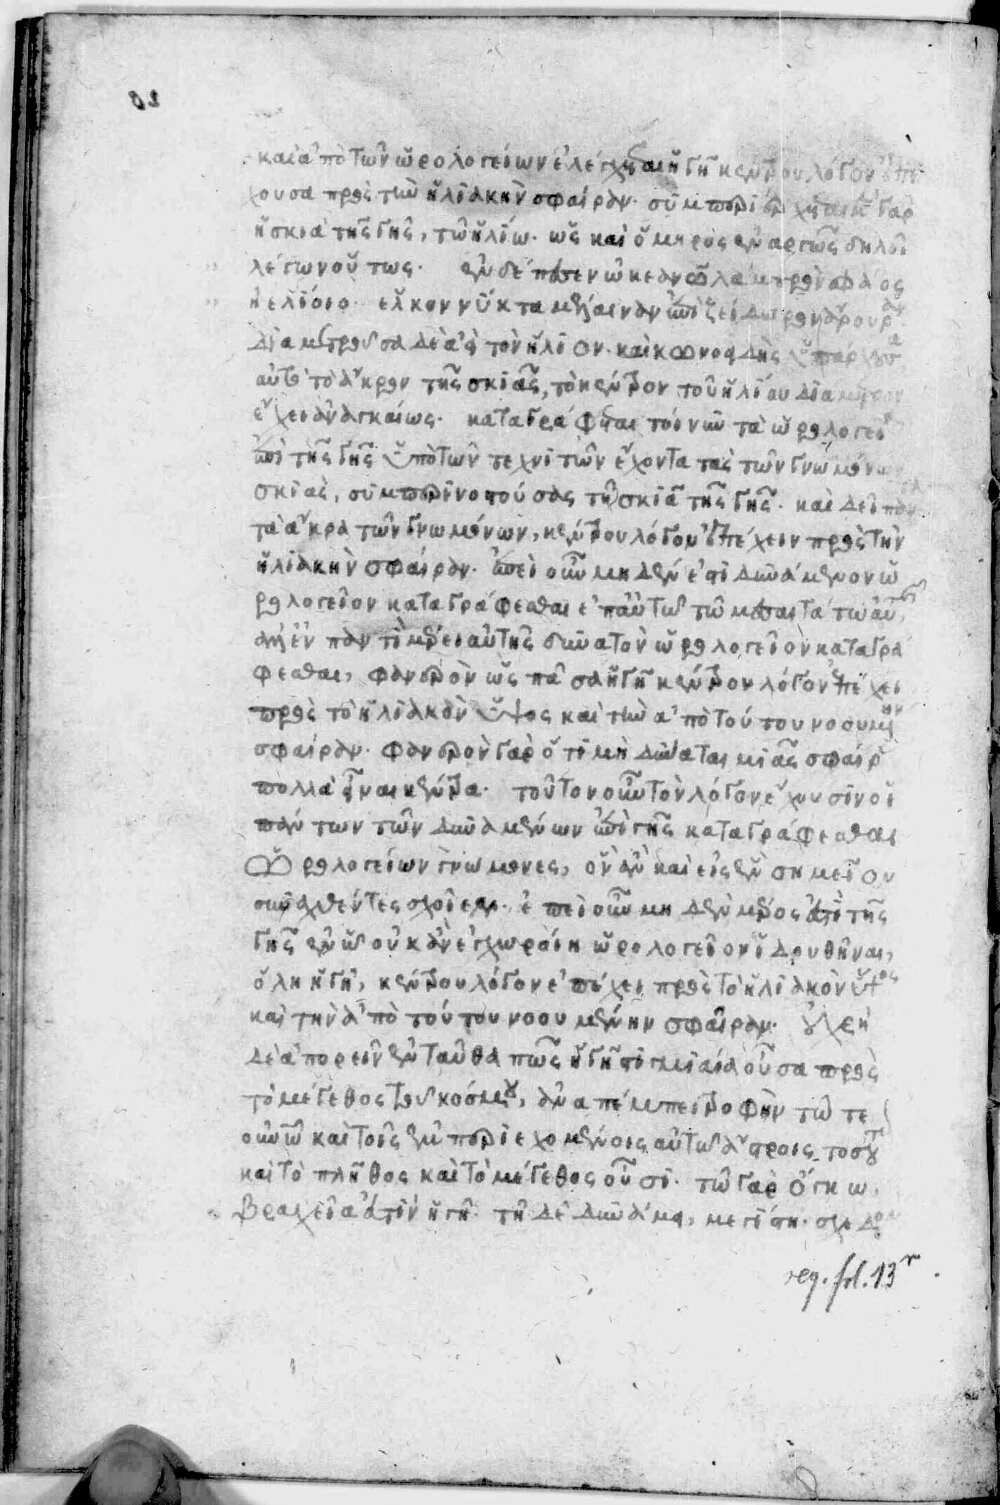 καὶ ἀπὸ τῶν ὡρολογείων ἐλέγχεται ἡ γῆ κέντρου λόγον ἐπέ
χουσα πρὸς τὴν ἡλιακὴν σφαῖραν· συμπεριέρχεται γὰρ
ἡ σκιὰ τῆς γῆς, τῷ ἡλίῳ· ὡς καὶ ὅμηρος ἐναργῶς δηλοῖ
λέγων οὕτως· ἐν δέ πεσεν ὠκεανῷ λαμπρὸν φάος
ἠελίοιο· εἷλκον νύκτα μέλαιναν ἐπὶ ζείδωρον ἄρουραν
διαμετροῦσα δὲ ἀεὶ τὸν ἥλιον· καὶ κωνοειδὴς ὑπάρχουσα
αὐτὸ τὸ ἄκρον τῆς σκιᾶς, τὸ κέντρον τοῦ ἡλίου διάμετρον
ἔχει ἀναγκαίως· καταγράφεται τοίνυν τὰ ὡρολογεῖα
ἐπὶ τῆς γῆς ὑπὸ τῶν τεχνιτῶν ἔχοντα τὰς τῶν γνωμόνων
σκιὰς, συμπερινοστούσας τῇ σκιᾷ τῆς γῆς· καὶ δεῖ πάν
τα ἄκρα τῶν γνωμόνων, κέντρου λόγον ἐπέχειν πρὸς τὴν
ἡλιακὴν σφαῖραν· ἐπεὶ οὖν μηδέν ἐστι δυνάμενον ὡ
ρολογεῖον καταγράφεσθαι
ἀλλ' ἐν παντὶ μέρει αὐτῆς δυνατὸν ὡρολογεῖον καταγρά
φεσθαι, φανερὸν ὡς πᾶσα ἡ γῆ κέντρου λόγον ἐπέχει
πρὸς τὸ ἡλιακὸν ὕψος καὶ τὴν ἀπὸ τούτου νοουμένην
σφαῖραν· φανερὸν γὰρ ὅτι μὴ δύναται μιᾶς σφαίρας
πολλὰ εἶναι κέντρα· τοῦτον οὖν τὸν λόγον ἔχουσιν οἱ
πάντων τῶν δυναμένων ἐπὶ γῆς καταγράφεσθαι
ὡρολογείων γνώμονες, ὃν ἂν καὶ εἰς ἓν σημεῖον
συναχθέντες σχοῖεν· ἐπεὶ οὖν μηδὲν μέρος ἐστὶ τῆς
γῆς ἐν ᾧ οὐκ ἂν ἐγχωροίη ὡρολογεῖον ἱδρυθῆναι,
ὅλη ἡ γῆ, κέντρου λόγον ἐπέχει πρὸς τὸ ἡλιακὸν ὕψος
καὶ τὴν ἀπὸ τούτου νοουμένην σφαῖραν· οὐ χρὴ
δὲ ἀπορεῖν ἐνταῦθα πῶς ἡ γῆ στιγμιαία οὖσα πρὸς
τὸ μέγεθος τοῦ κόσμου, ἀναπέμπει τροφὴν τῷ τε
οὐνῷ καὶ τοῖς ἐμπεριεχομένοις αὐτῷ ἄστροις τοσούτοις
καὶ τὸ πλῆθος καὶ τὸ μέγεθος οὖσι· τῷ γὰρ ὄγκῳ
βραχεῖά ἐστιν ἡ γῆ· τῇ δὲ δυνάμει, μεγίστη· σχεδὸν
reg. fol. 13r